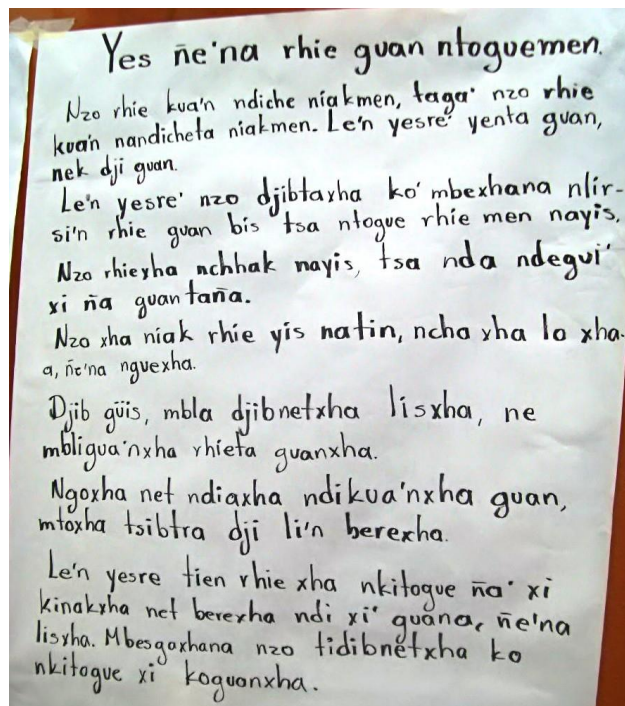 Yes ñe'na rhie guan ntoguemen.
Nzo rhie kua'n ndiche níakmen, taga' nzo rhie
kua'n nandicheta níakmen. Le'n yesre' yenta guan,
nek dji guan.
Le'n yesre' nzo djibtaxha ko' mbexhana nlír-
si'n rhie guan bis tsa ntogue rhíe men nayis.
Nzo rhiexha nchhak nayis, tsa nda ndegui'
xi ña guan taña.
Nzo xha níak rhíe yis natin, ncha xha lo xha-
a, ñe'na nguexha.
Djib güis, mbla djibnetxha lisxha, ne
mbligua'nxha rhieta guanxha.
Ngoxha net ndiaxha ndikua'nxha guan,
mtoxha tsibtra dji li'n berexha.
Le'n yesre tien rhie xha nkitogue ña' xi
kinakxha net berexha ndi xi' guana, ñe'na
lisxha. Mbesgoxhana nzo tidibnetxha ko
nkitogue xi koguanxha.